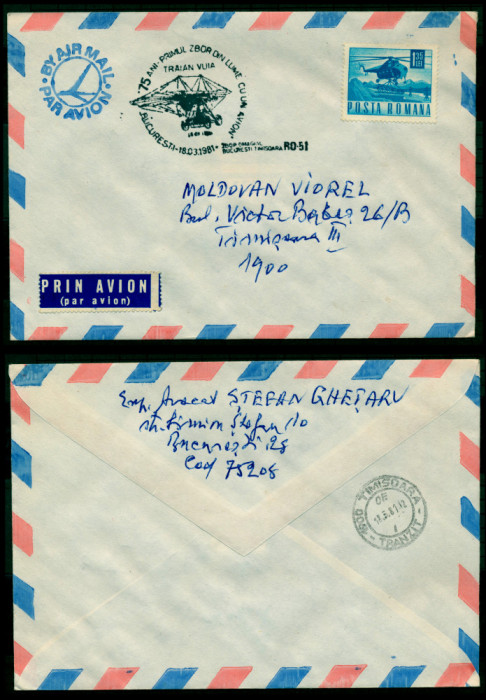 BY AIR MAIL
PAR AVION
75 ANI - PRIMUL ZBOR DIN LUME CU UN "AVION"
TRAIAN VUIA
BUCUREȘTI - 18.03.1981
BUCUREȘTI TIMIȘOARA RO-51
1,35 LEI
POSTA ROMANA
MOLDOVAN VIOREL
Bul. Victor Babeș 26/B
Timișoara III
1900
PRIN AVION
(par avion)
Exp. Avocat ȘTEFAN GHEȚARU
Ștefan 10
București 28
Cod 75208
TIMISOARA
1900 - TRANZIT -